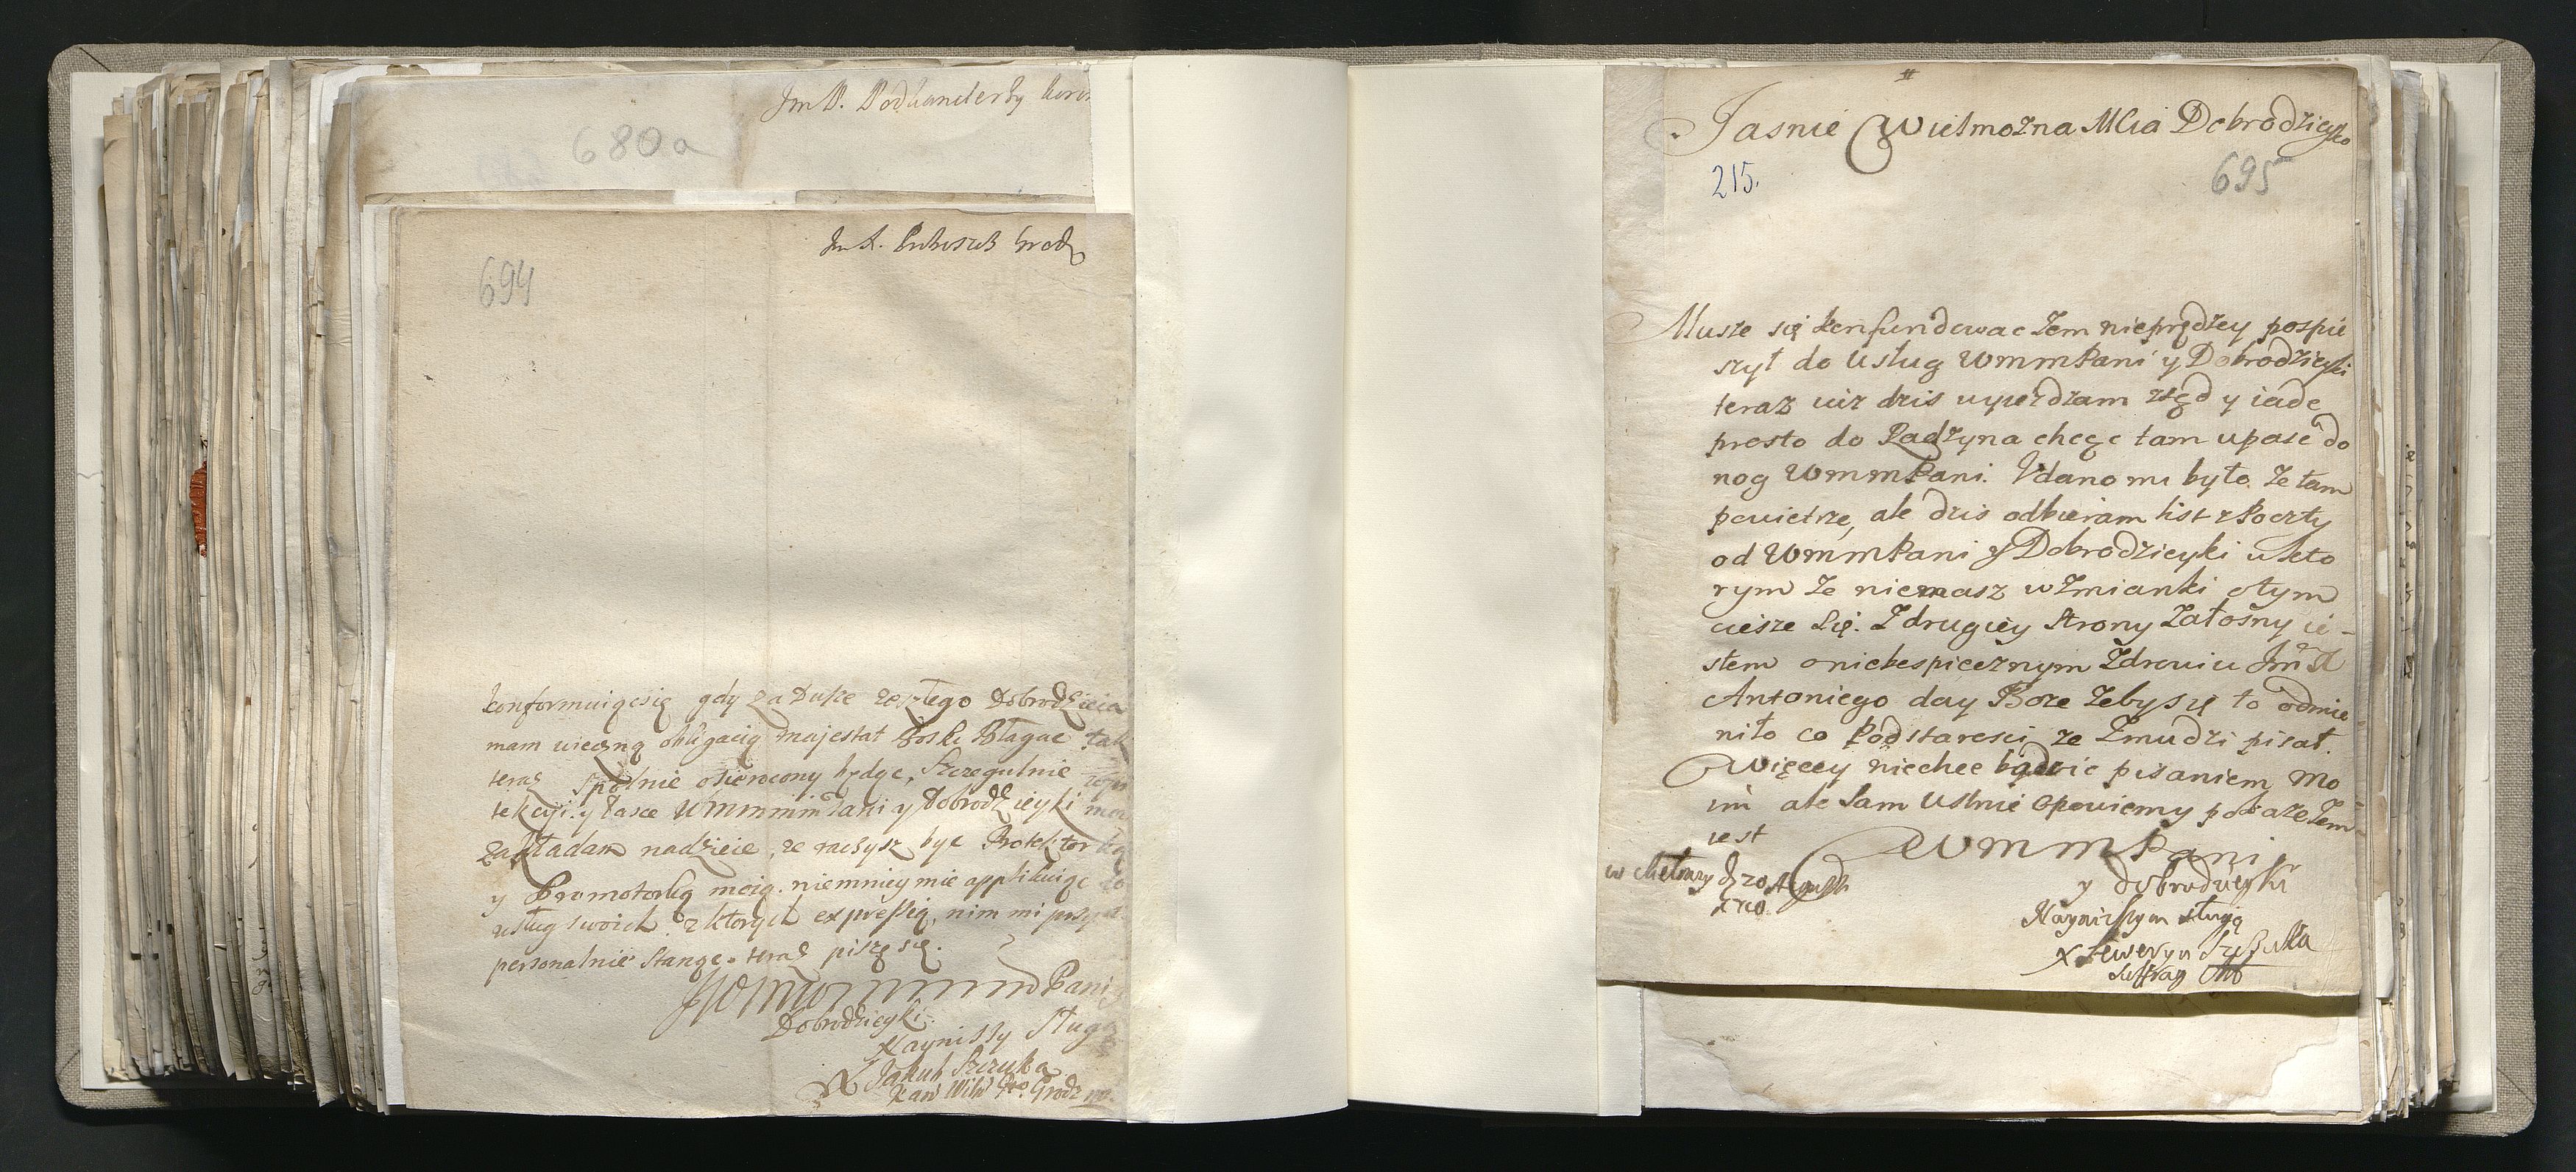 Jm P. Podkanclerzy Koron
680a
694
konformuiącsię gdy za Duszę zeszłego Dobrodzieia
mam wieczną obligacią majestat Boski Błagac tak
teraz spolnie osierocony będąc, Szczegulnie
tekcyi y łasce Wmmm Pani y Dobrodzieyki
zakładam nadzieie, ze raczysz byc Protektorką
y Promotorką moią. niemniey mie applikuiąc do
usług swoich z ktorych expressią, nim mi
personalnie stanąc teraz piszę się.
Pani
Dobrodzieyki
Naynisszy Sługa
X Jakub Szczuka
Kan Grodz
#
Jasnie Wielmozna Mcia Dobrodzieyko
215.
695
Musze się konfundowac zem nieprędzey pospie
szył do Usług WmmPani y Dobrodzieyki
teraz iuz dzis wyiezdzam ztąd y iade
prosto do Radzyna chcąc tam upasc do
nog WmmPani. Udano mi było ze tam
powietrze, ale dzis odbieram list z Poczty
od WmmPani y Dobrodzieyki w kto
rym ze niemasz wzmianki otym
ciesze się. Z drugiey Strony załosny ie-
stem o niebespiecznym Zdrowiu Jm X
Antoniego day Boze zeby się to odmie
niło co Podstarosci ze Zmudzi pisał.
Więcey niechce bawic pisaniem mo
im ale sam Ustnie opowiemy pokaze zem
iest
WmmPani
w chełmzy d 20 Augusti
1710.
y dobrodzieyki
Nayniszym sługą
X Seweryn Szczuka
Suffrag